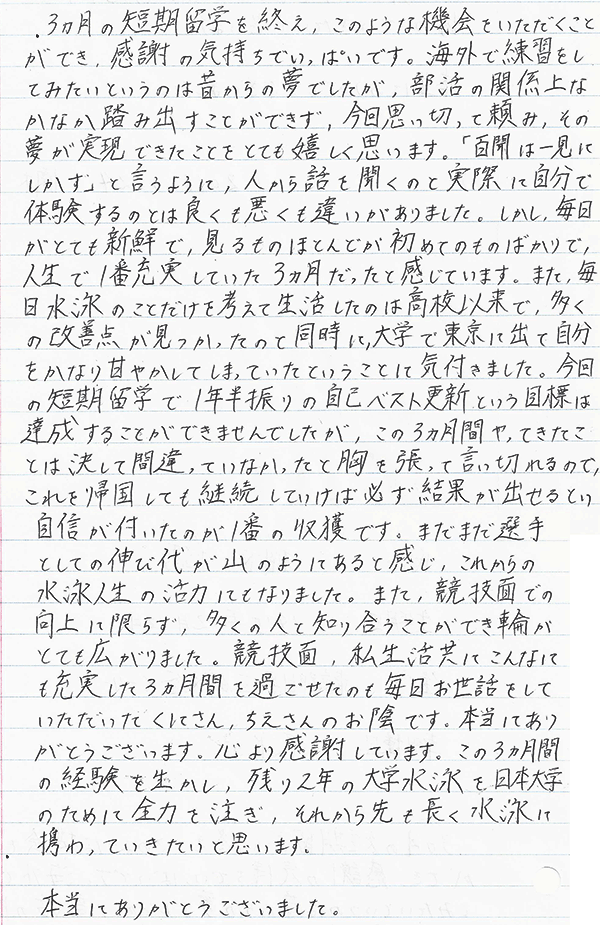 3ヵ月の短期留学を終え,このような機会をいただくこと
ができ,感謝の気持ちでいっぱいです。海外で練習をし
てみたいというのは昔からの夢でしたが,部活の関係上な
かなか踏み出すことができず,今回思い切って頼み,その
夢が実現できたことをとても嬉しく思います。「百聞は一見に
しかず」と言うように,人から話を聞くのと実際に自分で
体験するのとは良くも悪くも違いがありました。しかし,毎日
がとても新鮮で,見るものほとんどが初めてのものばかりで,
人生で1番充実していた3ヵ月だったと感じています。また,毎
日水泳のことだけを考えて生活したのは高校以来で,多く
の改善点が見つかったのと同時に,大学で東京に出て自分
をかなり甘やかしてしまっていたということに気付きました。今回
の短期留学で1年半振りの自己ベスト更新という目標は
達成することができませんでしたが,この3ヵ月間やってきたこ
とは決して間違っていなかったと胸を張って言い切れるので,
これを帰国しても継続していけば必ず結果が出せるという
自信が付いたのが1番の収獲です。まだまだ選手
としての伸び代が山のようにあると感じ,これからの
水泳人生の活力にもなりました。また,競技面での
向上に限らず,多くの人と知り合うことができ輪が
とても広がりました。競技面,私生活共にこんなに
も充実した3ヵ月間を過ごせたのも毎日お世話をして
いただいたくにさん,ちえさんのお陰です。本当にあり
がとうございます。心より感謝しています。この3ヵ月間
の経験を生かし,残り2年の大学水泳を日本大学
のために全力を注ぎ,それから先も長く水泳に
携わっていきたいと思います。
本当にありがとうございました。